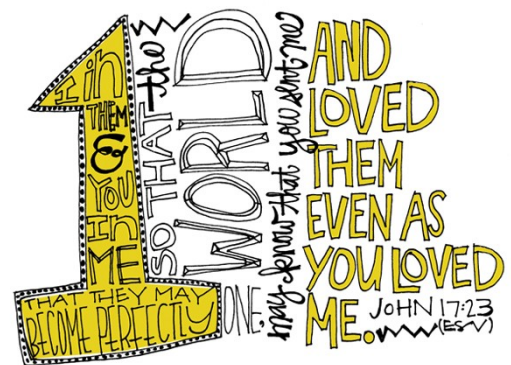 I in
THEM
&
YOU
In
ME
THAT THEY MAY
BECOME PERFECTLY
ONE,
SO THAT the
WORLD
may know that you sent me
AND
LOVED
THEM
EVEN AS
YOU LOVED
ME.
JOHN 17:23
(ESV)